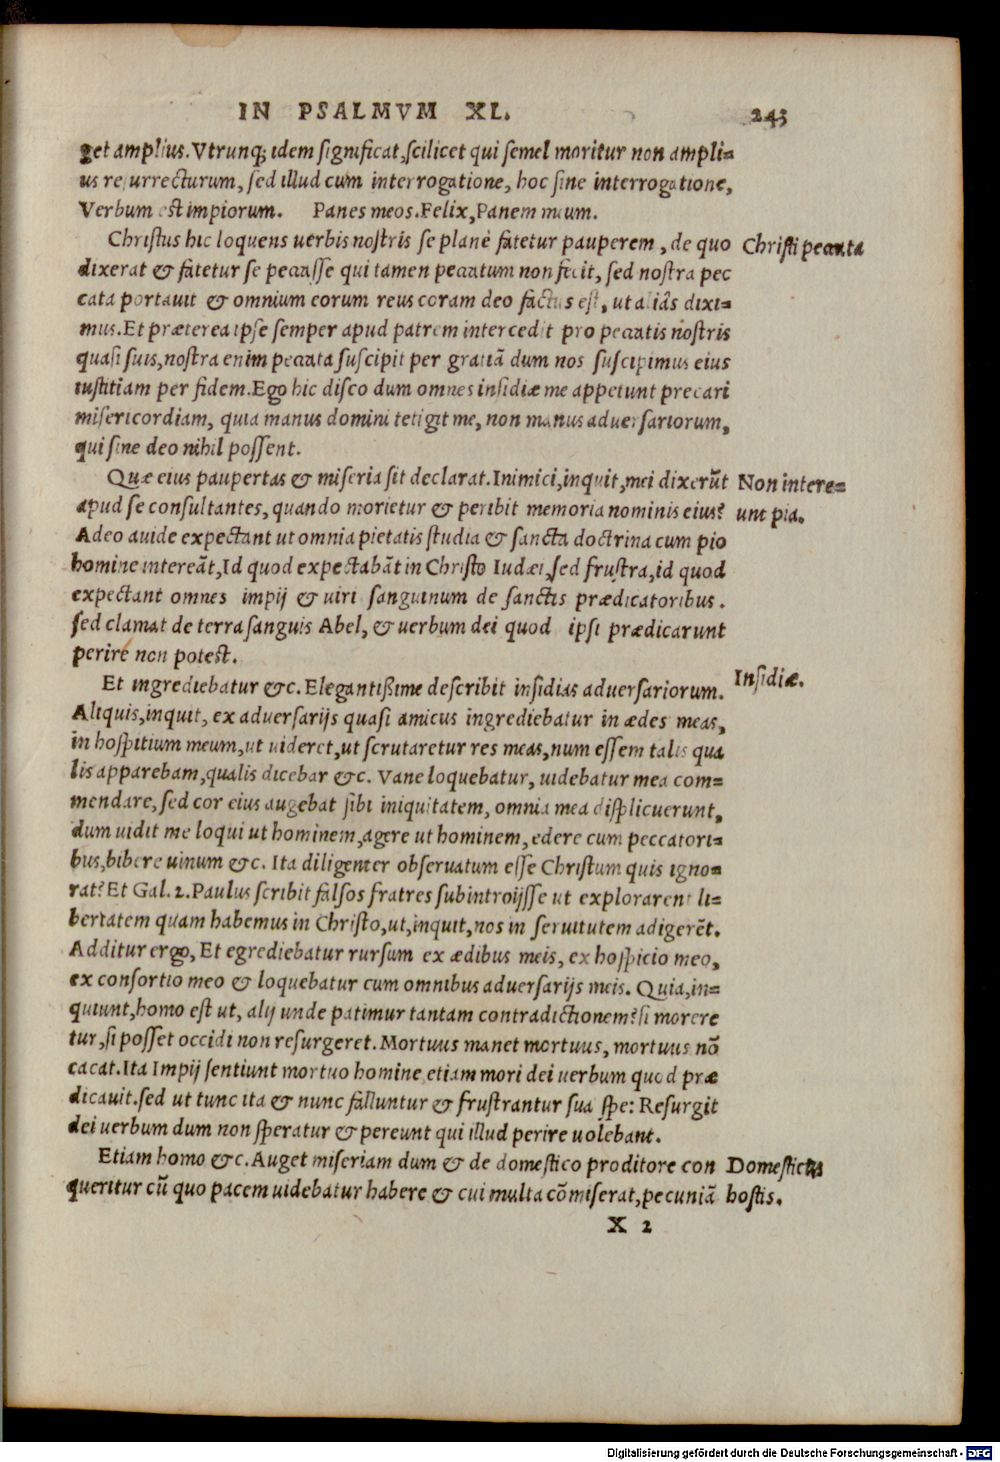 IN PSALMVM XL. 243
get amplius. Vtrunq; idem significat, scilicet qui semel moritur non ampli=
us resurrecturum, sed illud cum interrogatione, hoc sine interrogatione,
Verbum est impiorum. Panes meos. Felix, Panem meum.
Christus hic loquens uerbis nostris se planè fatetur pauperem, de quo
Christi peccata
dixerat & fatetur se peccasse qui tamen peccatum non fecit, sed nostra pec
cata portauit & omnium eorum reus coram deo factus est, ut aliâs dixi=
mus. Et præterea ipse semper apud patrem intercedit pro peccatis nostris
quasi suis, nostra enim peccata suscipit per gratiã dum nos suscipimus eius
iustitiam per fidem. Ego hic disco dum omnes insidiæ me appetunt precari
misericordiam, quia manus domini tetigit me, non manus aduersariorum,
qui sine deo nihil possent.
Quæ eius paupertas & miseria sit declarat. Inimici, inquit, mei dixerũt
Non intere=
apud se consultantes, quando morietur & peribit memoria nominis eius?
unt pia.
Adeo auide expectant ut omnia pietatis studia & sancta doctrina cum pio
homine intereãt, Id quod expectabãt in Christo Iudæi, sed frustra, id quod
expectant omnes impij & uiri sanguinum de sanctis prædicatoribus.
sed clamat de terra sanguis Abel, & uerbum dei quod ipsi prædicarunt
perire non potest.
Et ingrediebatur &c. Elegantißime describit insidias aduersariorum.
Insidiæ.
Aliquis, inquit, ex aduersarijs quasi amicus ingrediebatur in ædes meas,
in hospitium meum, ut uideret, ut scrutaretur res meas, num essem talis qua
lis apparebam, qualis dicebar &c. Vane loquebatur, uidebatur mea com=
mendare, sed cor eius augebat sibi iniquitatem, omnia mea displicuerunt,
dum uidit me loqui ut hominem, agere ut hominem, edere cum peccatori=
bus, bibere uinum &c. Ita diligenter obseruatum esse Christum quis igno=
rat? Et Gal. 2. Paulus scribit falsos fratres subintroijsse ut explorarent li=
bertatem quam habemus in Christo, ut, inquit, nos in seruitutem adigerẽt.
Additur ergo, Et egrediebatur rursum ex ædibus meis, ex hospicio meo,
ex consortio meo & loquebatur cum omnibus aduersarijs meis. Quia, in=
quiunt, homo est ut, alij unde patimur tantam contradictionem? si morere
tur, si posset occidi non resurgeret. Mortuus manet mortuus, mortuus nõ
cacat. Ita Impij sentiunt mortuo homine etiam mori dei uerbum quod præ
dicauit. sed ut tunc ita & nunc falluntur & frustrantur sua spe: Resurgit
dei uerbum dum non speratur & pereunt qui illud perire uolebant.
Etiam homo &c. Auget miseriam dum & de domestico proditore con
Domesticus
queritur cũ quo pacem uidebatur habere & cui multa cõmiserat, pecuniã
hostis.
X 2
Digitalisierung gefördert durch die Deutsche Forschungsgemeinschaft - DFG